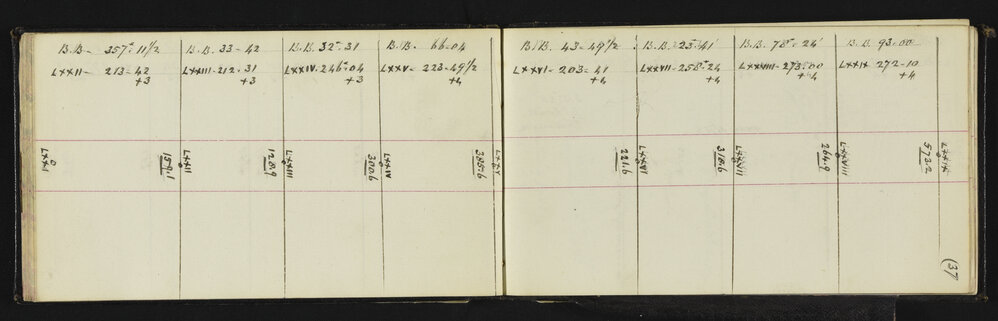 B.B - 357° 11 1/2
LXXII - 213 - 42
+3
B.B. 33 - 42
LXXIII - 212 - 31
+3
B.B. 32° - 31
LXXIV - 246° - 04
+3
B.B. 66 - 04
LXXV - 223 - 49 1/2
+4
B.B. 43 - 49 1/2
LXXVI - 203 - 41
+4
B.B. 23° 41'
LXXVII - 258° - 24
+4
B.B. 78° - 24'
LXXVIII - 273 - 00
+4
B.B. 93 - 00
LXXIX - 272 - 10
+4
0
LXXI
159.1
LXXII
0
128.9
LXXIII
0
300.6
LXXIV
0
385.6
LXXV
221.6
LXXVI
0
318.6
LXXVII
0
264.9
LXXVIII
0
573.2
LXXIX
0
(37